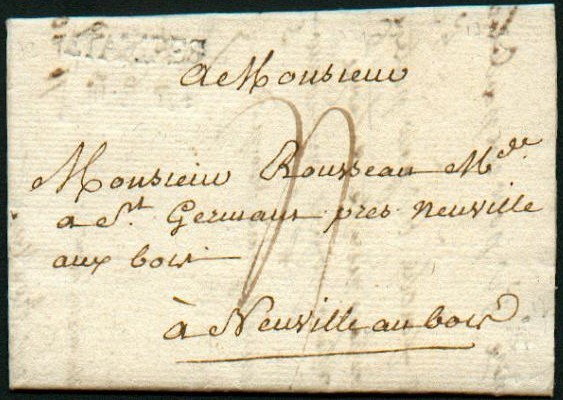 ETAMPES
A Monsieur
Monsieur Rousseau Mde.
a St Germant pres neuville
aux bois
à Neuville au bois